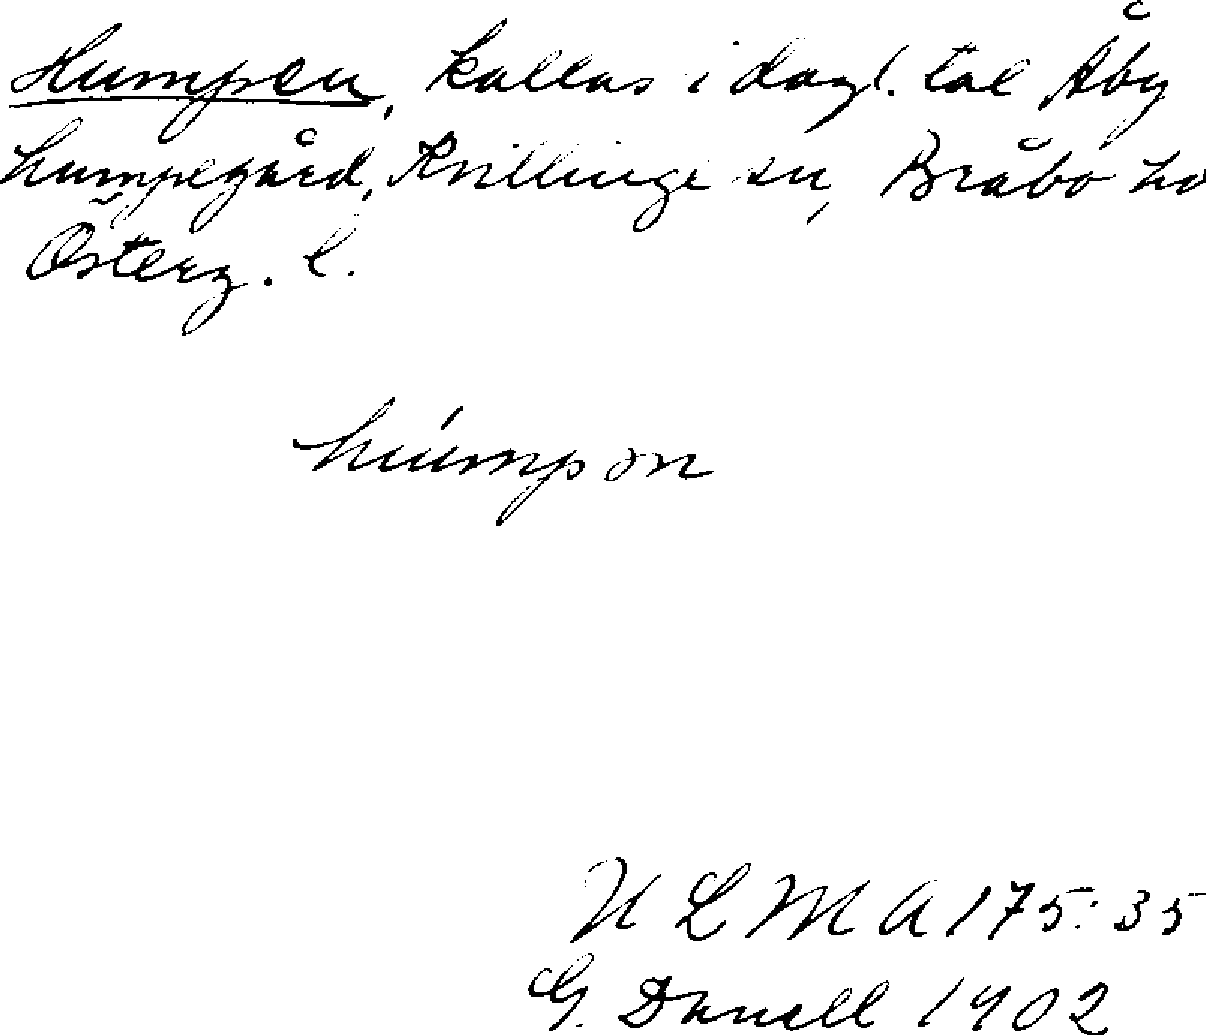 Humpen, kallas i dagl. tal Åby
humpegård, Kvillinge sn, Bråbo hd
Österg. l.
húmpən
ULMA 175:35
G. Danell 1902